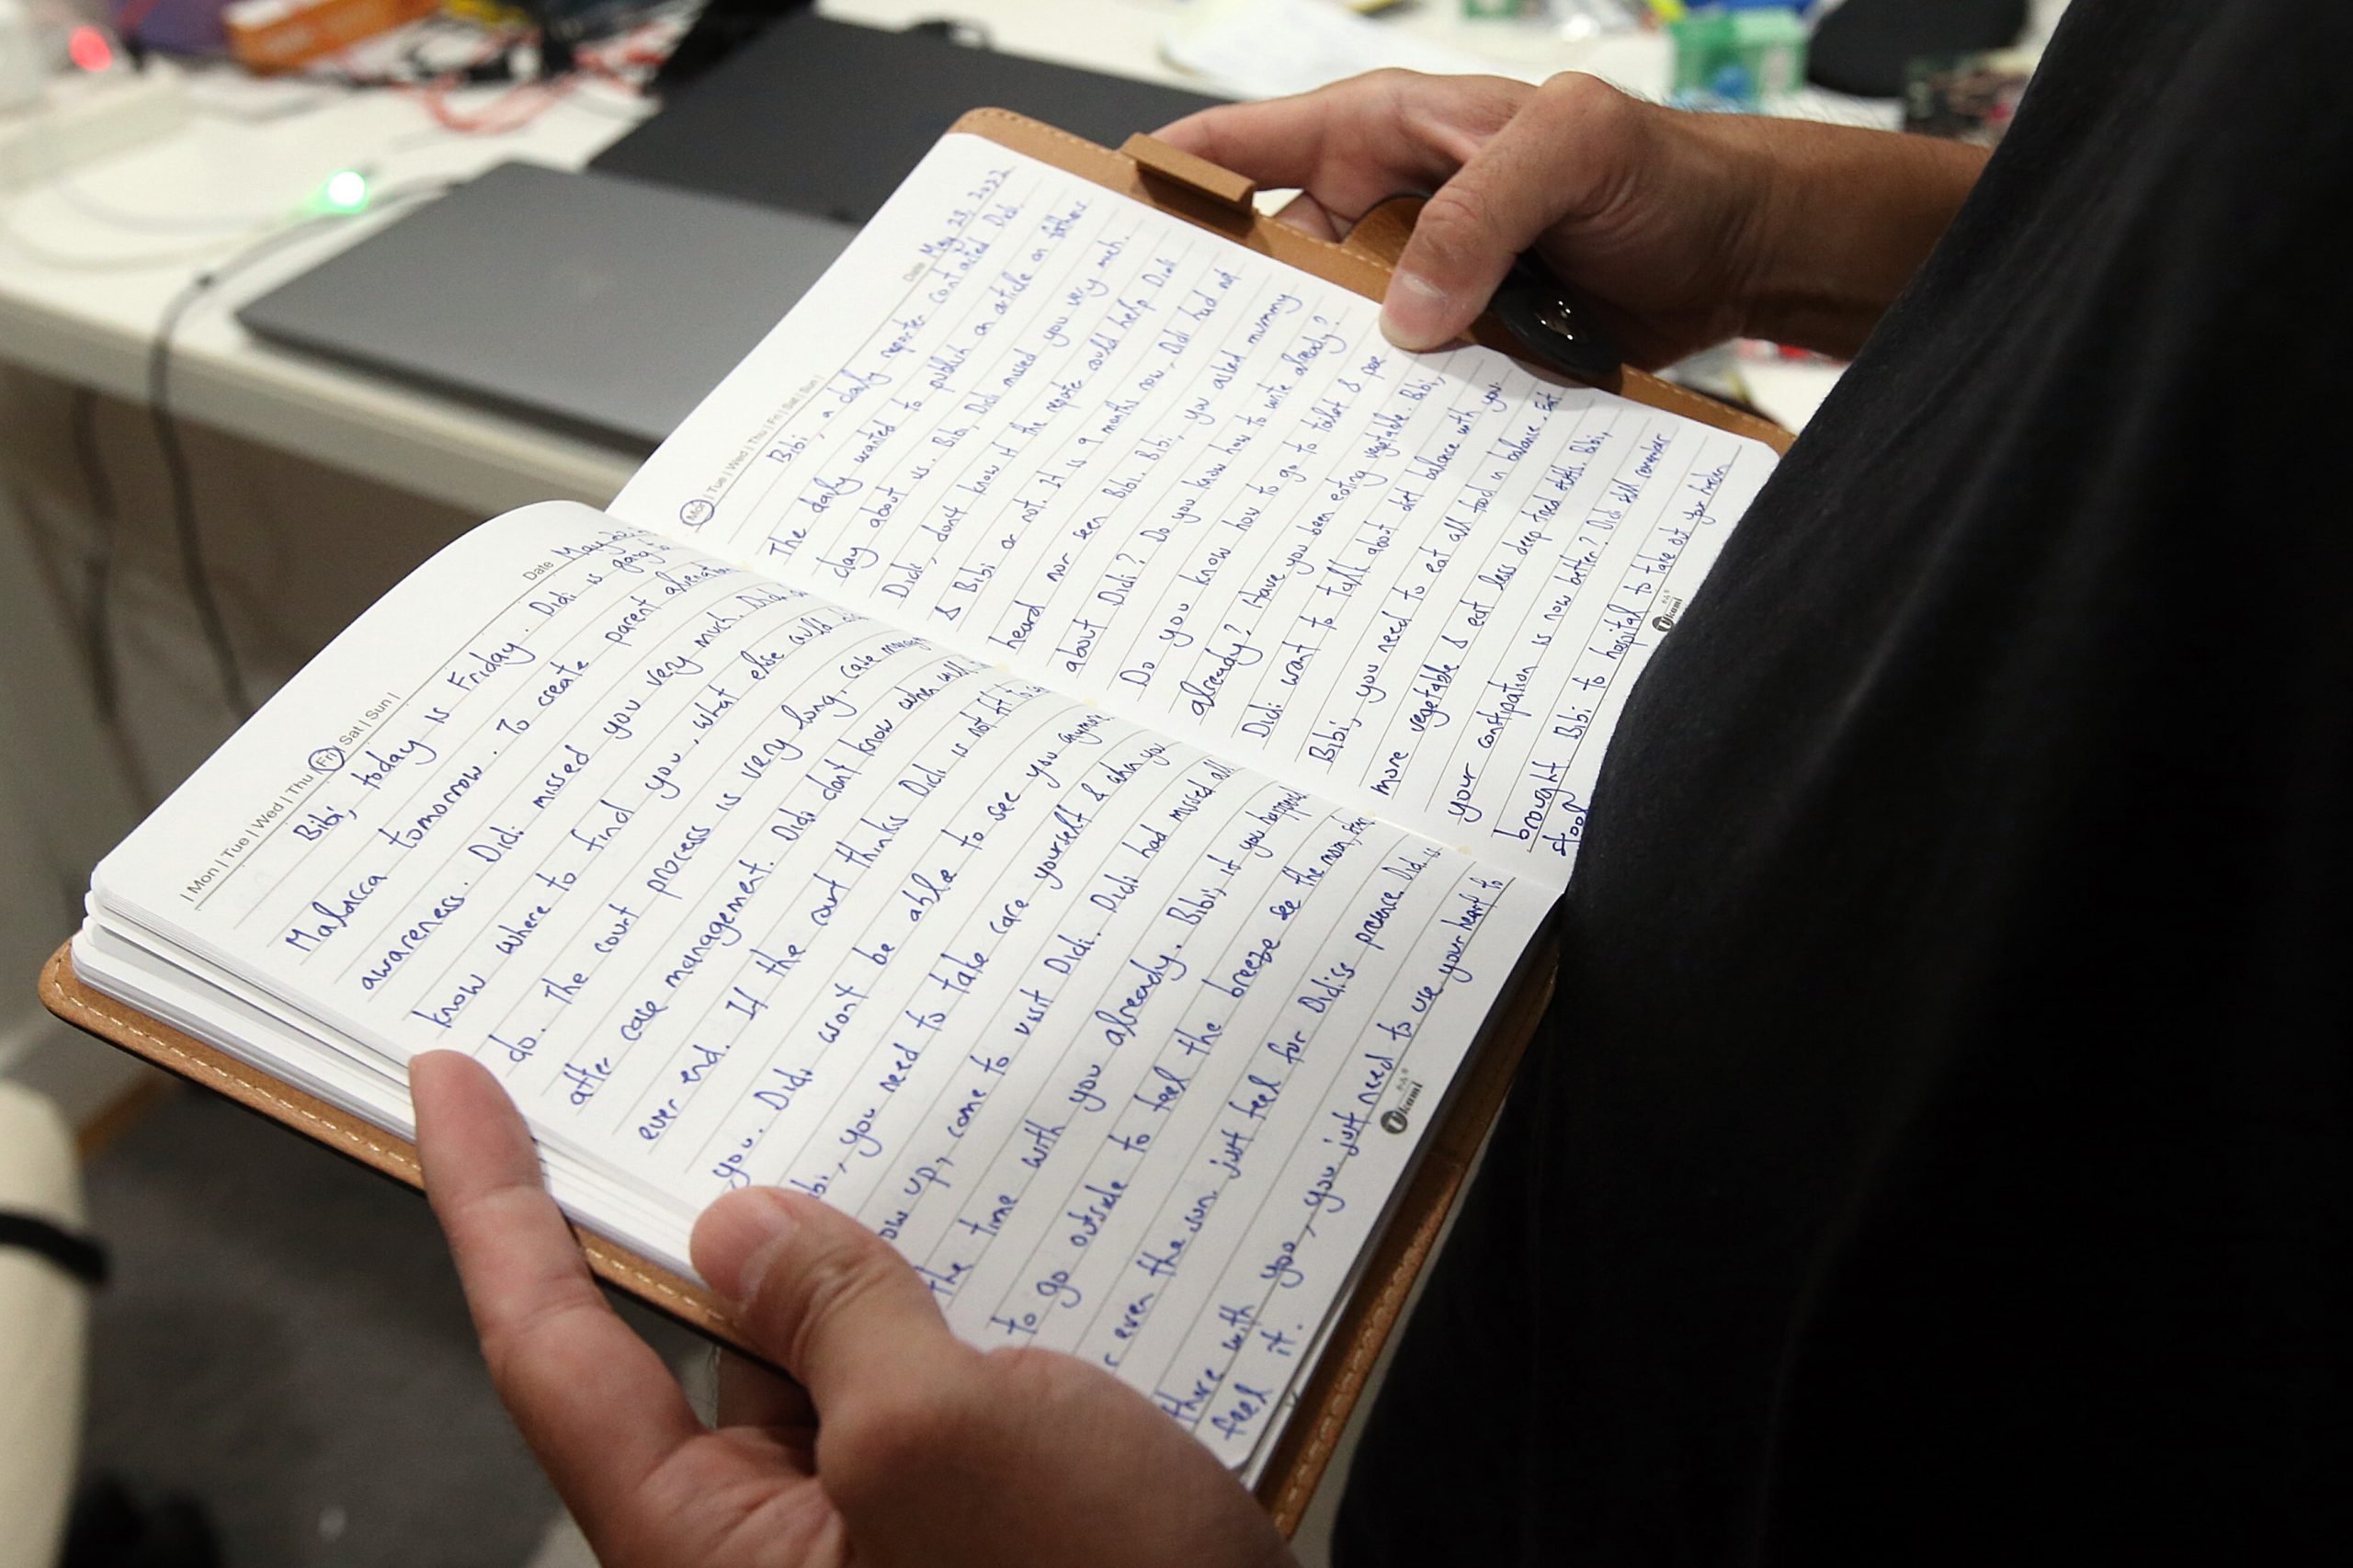 | Mon | Tue | Wed | Thu | Fri | Sat | Sun |
Date May 20,
Bibi, today is Friday. Didi is going to
Malacca tomorrow. To create parent alienation
awareness. Didi missed you very much. Didi
know where to find you, what else could
do. The court process is very long, case manage
after case management. Didi dont know when will
ever end. If the court thinks Didi is not fit to
you. Didi wont be able to see you anymore.
bi, you need to take care yourself & when you
ow up, come to visit Didi. Didi had missed all
the time with you already. Bibi, if you happened
to go outside to feel the breeze see the moon, star
r even the sun. just feel for Didi's presence. Didi is
there with you, you just need to use your heart to
feel it.
Ukami
Mon | Tue | Wed | Thu | Fri | Sat | Sun |
Date May 23, 2022
Bibi, a daily reporter contacted Didi.
The daily wanted to publish an article on fathers
day about us. Bibi, Didi missed you very much.
Didi, dont know if the reporte could help Didi
& Bibi or not. It is 9 months now, Didi had not
heard nor seen Bibi. Bibi, you asked mummy
about Didi? Do you know how to write already?
Do you know how to go to toilet & pee
already? Have you been eating vegetable. Bibi,
Didi want to talk about diet balance with you.
Bibi, you need to eat all food in balance. Eat
more vegetable & eat less deep fried stuffs. Bibi,
your constipation is now better? Didi still remember
brought Bibi to hospital to take out your harden
stool
Ukami